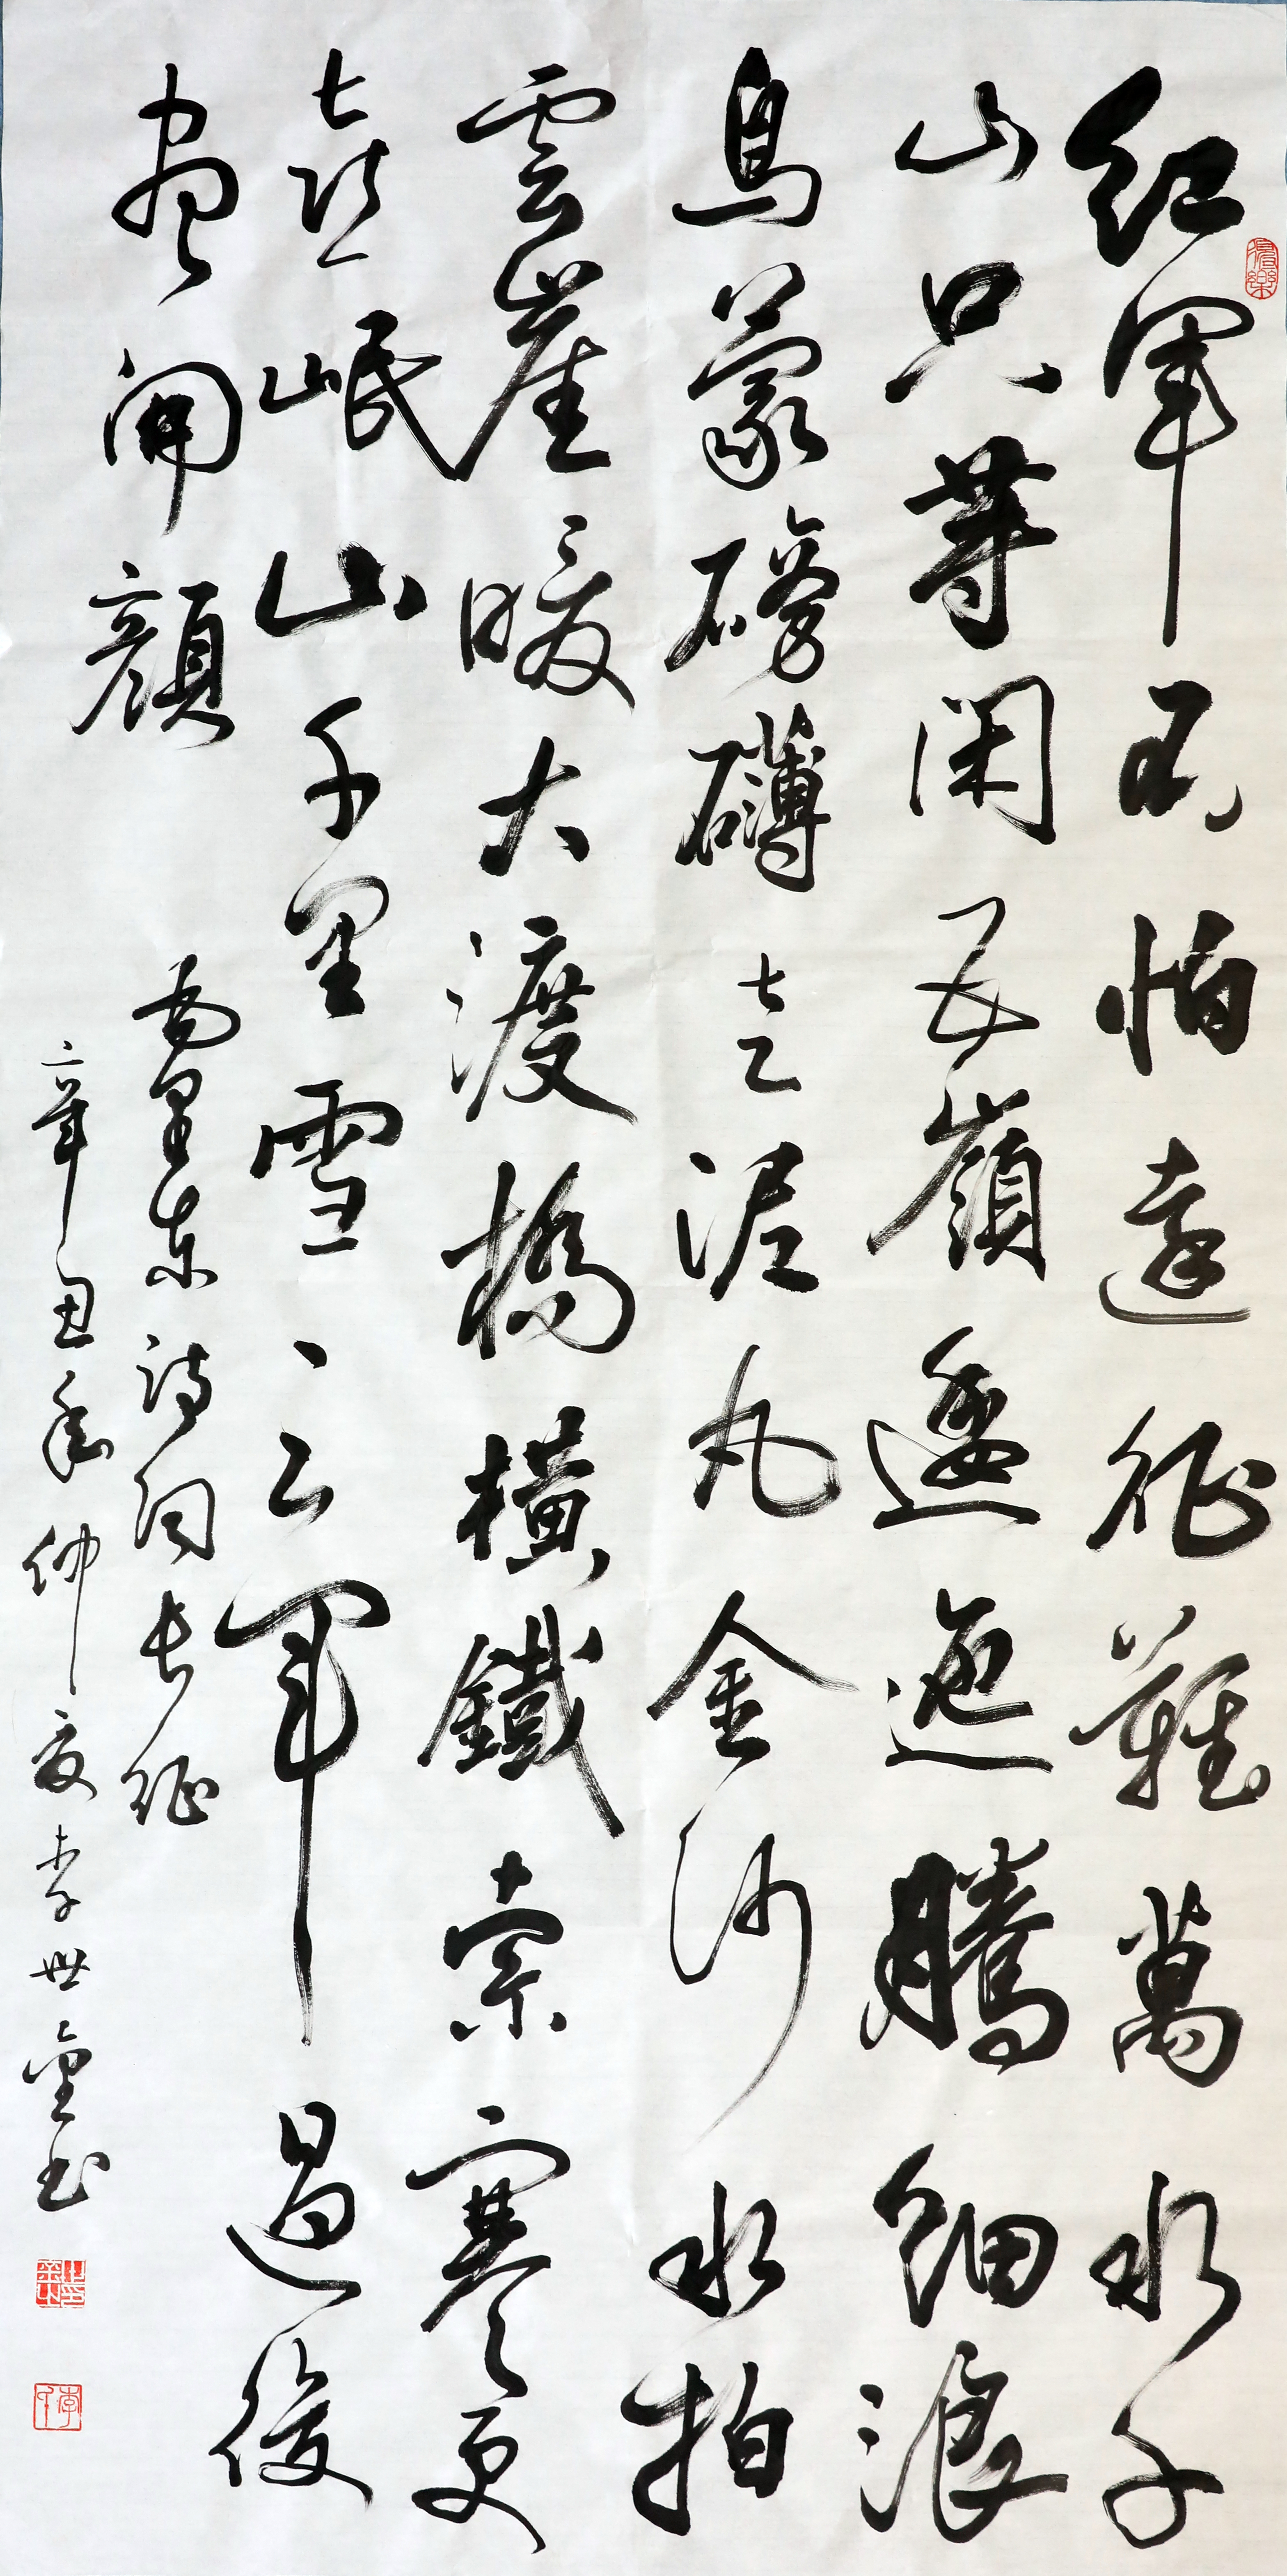 紅軍不怕遠征難萬水千
山只等閑五嶺逶迤騰細浪
烏蒙磅礴走泥丸金沙水拍
雲崖暖大渡橋橫鐵索寒更
喜岷山千里雪三軍過後
盡開顏
东詩詞長征
辛丑年仲夏李世書